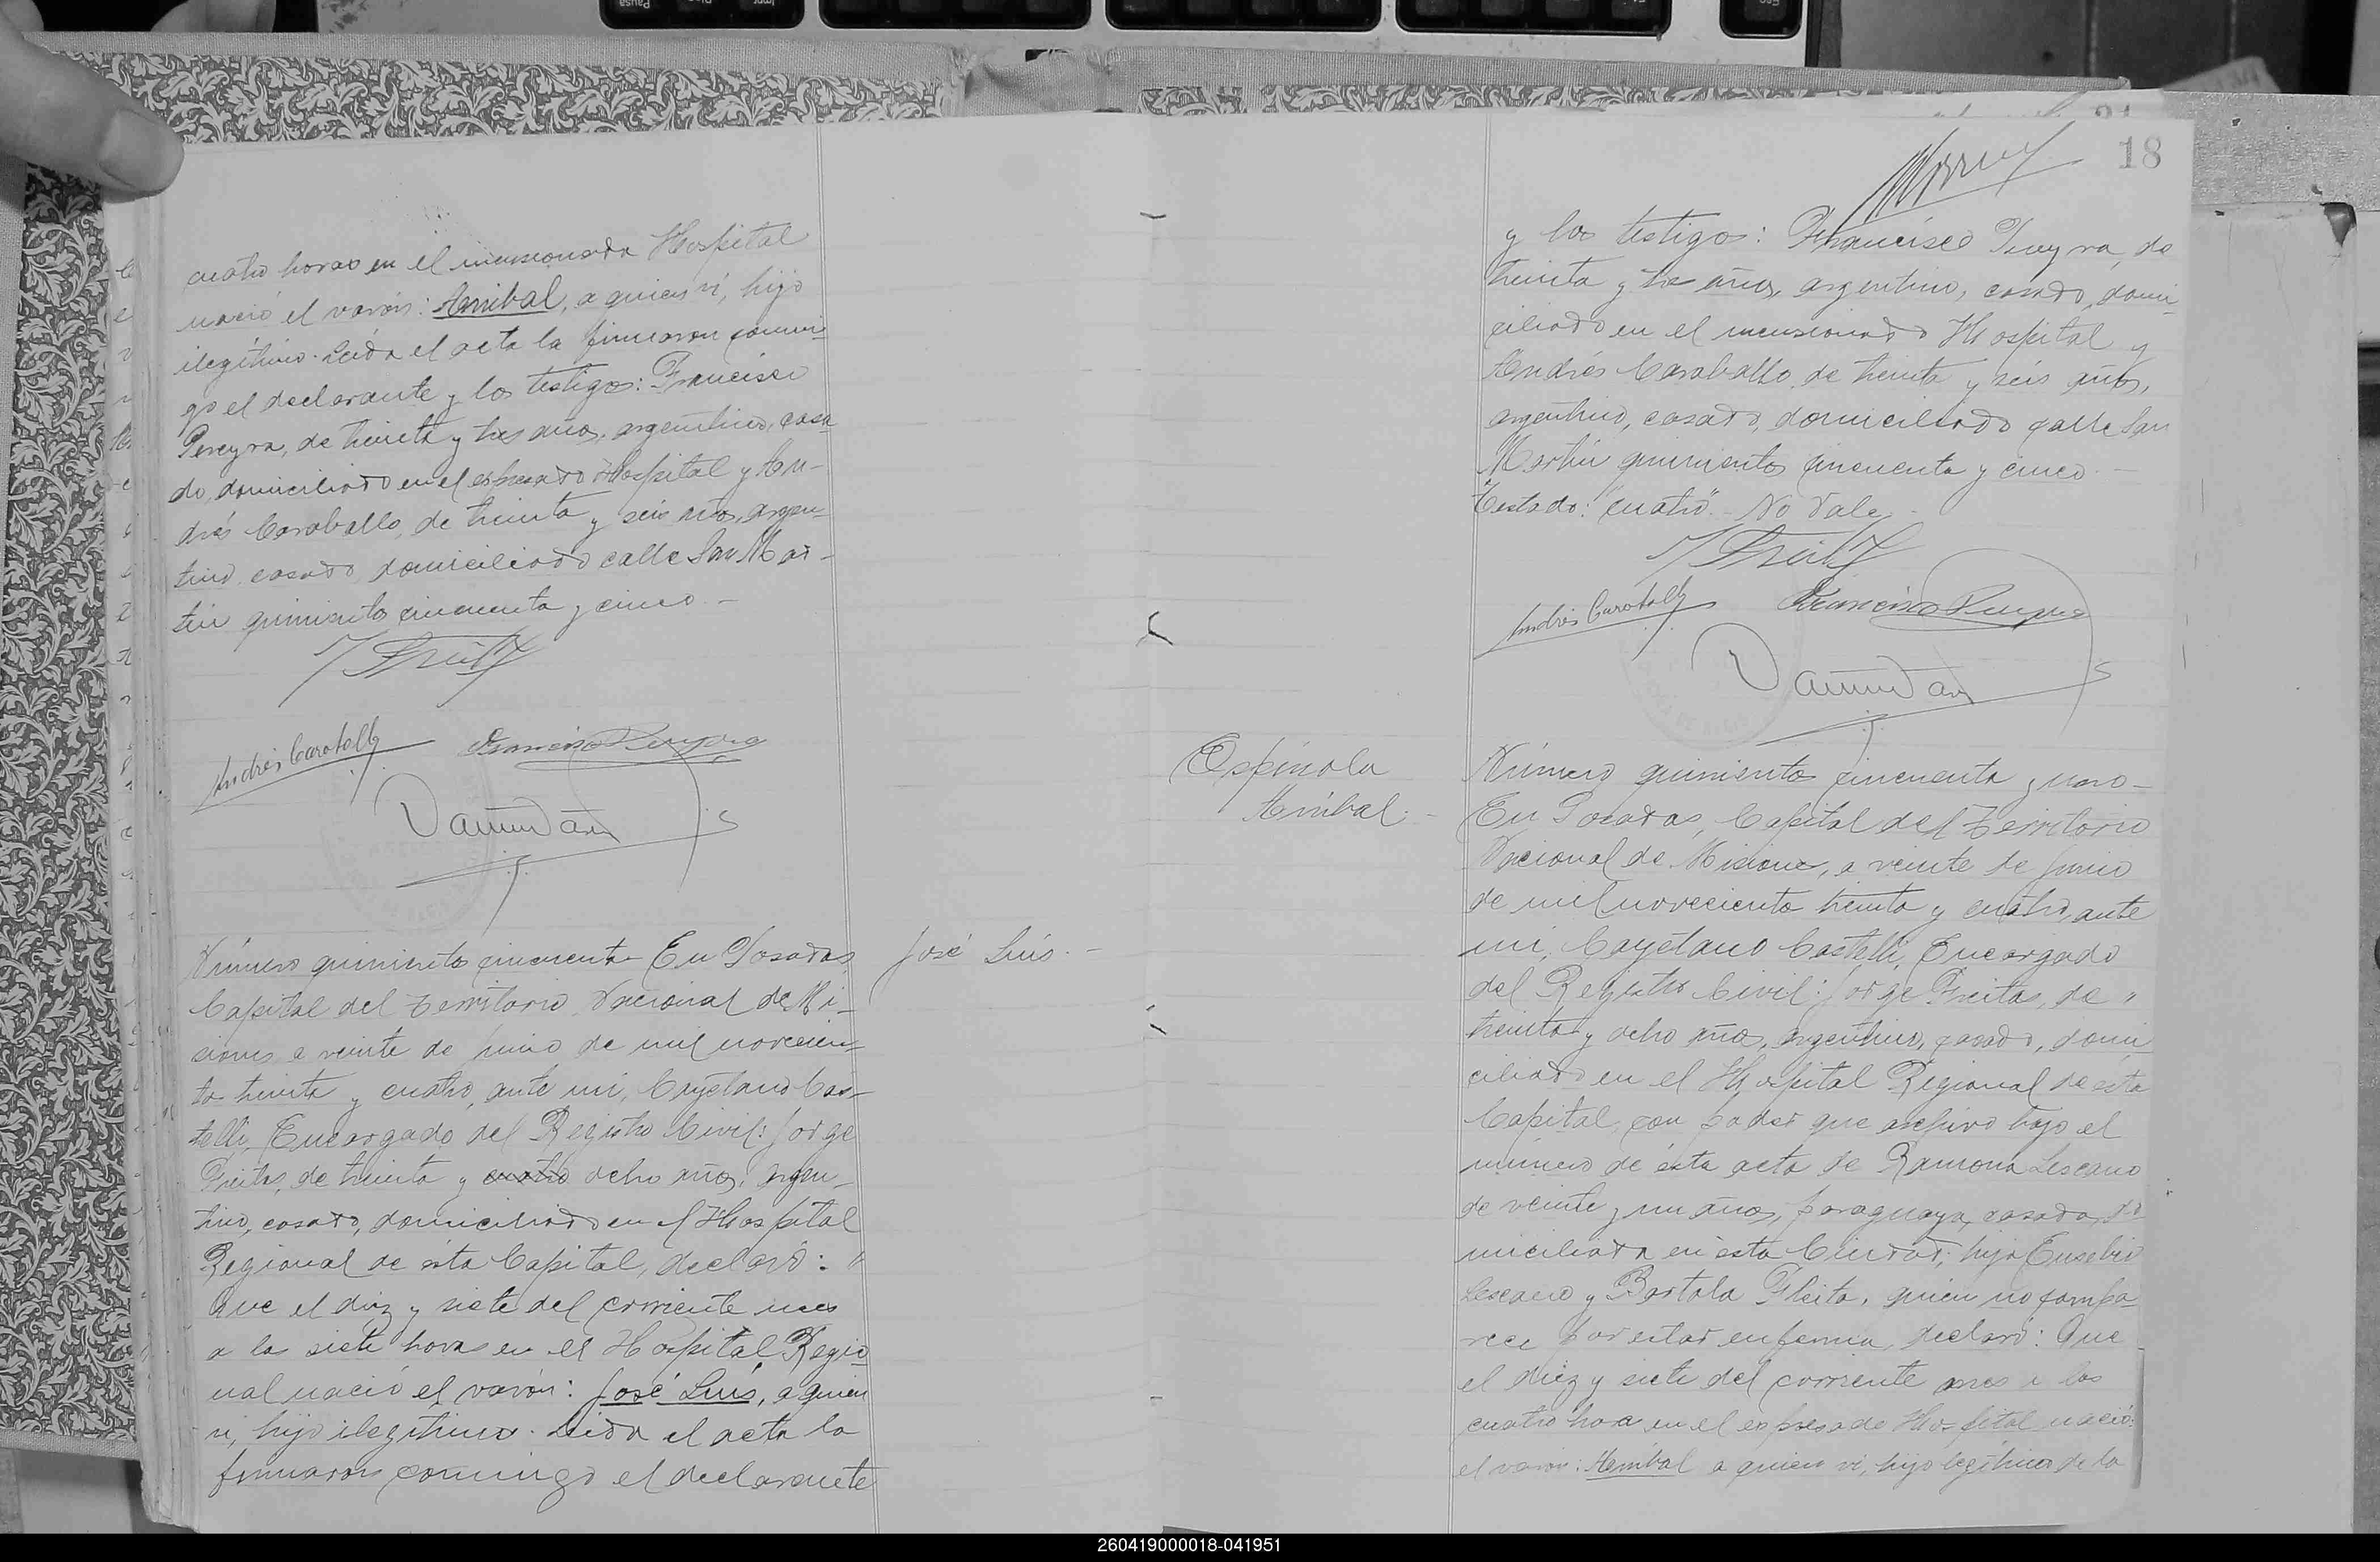 cuatro horas en el mensionado Hospital
nació el varón: Anníbal, a quien ví, hijo
ilegítimo. Leída el acta la firmaron conmi-
go el declarante y los testigos: Francisco
Pereyra, de treinta y tres años, argentino, casa-
do, domiciliado en el expresado Hospital y An-
drés Caraballo, de treinta y seis años, argen-
tino, casado, domiciliado calle San Mar-
tín quinientos cincuenta y cinco.-
J Freitas
Andrés Caraballo Francisco Pereyra
Número quinientos cincuenta En Posadas,
José Luis.-
Capital del Territorio Nacional de Mi-
siones a veinte de junio de mil novecien-
tos treinta y cuatro, ante mi, Cayétano Cas-
telli, Encargado del Registro Civil: Jorge
Freitas, de treinta y cuatro ocho años, argen-
tino, casado, domiciliado en el Hospital
Regional de ésta Capital, declaró: "
Que el diez y siete del corriente mes
a las siete horas en el Hospital Regio-
nal nació el varón: José Luís, a quien
ví, hijo ilegítimo. Leída el acta la
firmaron conmigo el declarante
18
y los testigos: Francisco Pereyra, de
treinta y tres años, argentino, casado, domi-
ciliado en el mensionado Hospital y
Andrés Caraballo de treinta y seis años,
argentino, casado, domiciliado calle San
Martín quinientos cincuenta y cinco.-
Testado: "cuatro".- No Vale.
J Freitas
Andrés Caraballo Francisco Pereyra
Espínola
Aníbal.-
Número quinientos cincuenta y uno-
En Posadas, Capital del Territorio
Nacional de Misiones, a veinte de junio
de mil novecientos treinta y cuatro, ante
mi, Cayétano Castelli, Encargado
del Registro Civil: Jorge Freitas, de "
treinta y ocho años, argentino, casado, domi-
ciliado en el Hospital Regional de esta
Capital, con poder que archivo bajo el
número de ésta acta de Ramona Lescano
de veinte y un años, paraguaya, casada, do-
miciliada en ésta Ciudad, hija Eusebio
Lescano y Bartola Fleita, quien no compa-
rece por estar enferma, declaró: Que
el diez y siete del corriente mes a las
cuatro horas en el expresado Hospital nació:
el varón: Aníbal a quien ví, hijo legítimo de la
260419000018-041951